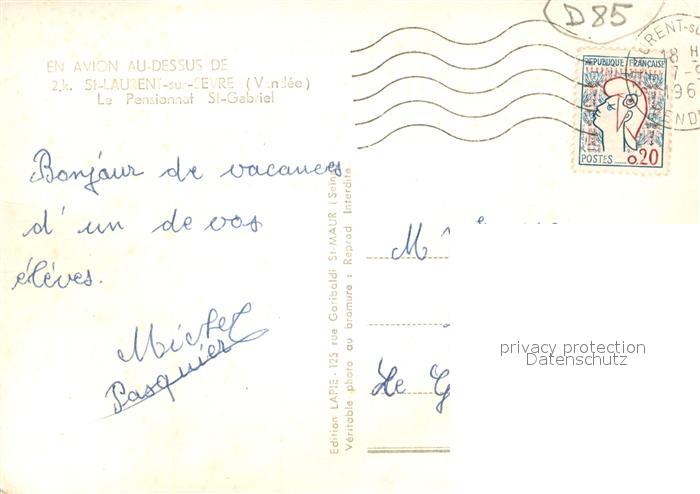 D85
EN AVION AU-DESSUS DE
2.k. St-LAURENT-sur-SEVRE (Vendée)
Le Pensionnat St-Gabriel
RENT-su
18 H
196
REPUBLIQUE FRANÇAISE
POSTES 0,20
Bonjour de vacances
d'un de vos
éléves.
Michel
Pasquier
Edition LAPIE - 125 rue Garibaldi St-MAUR (Seine)
Véritable photo au bromure : Reprod Interdite
M
Le G
privacy protection
Datenschutz